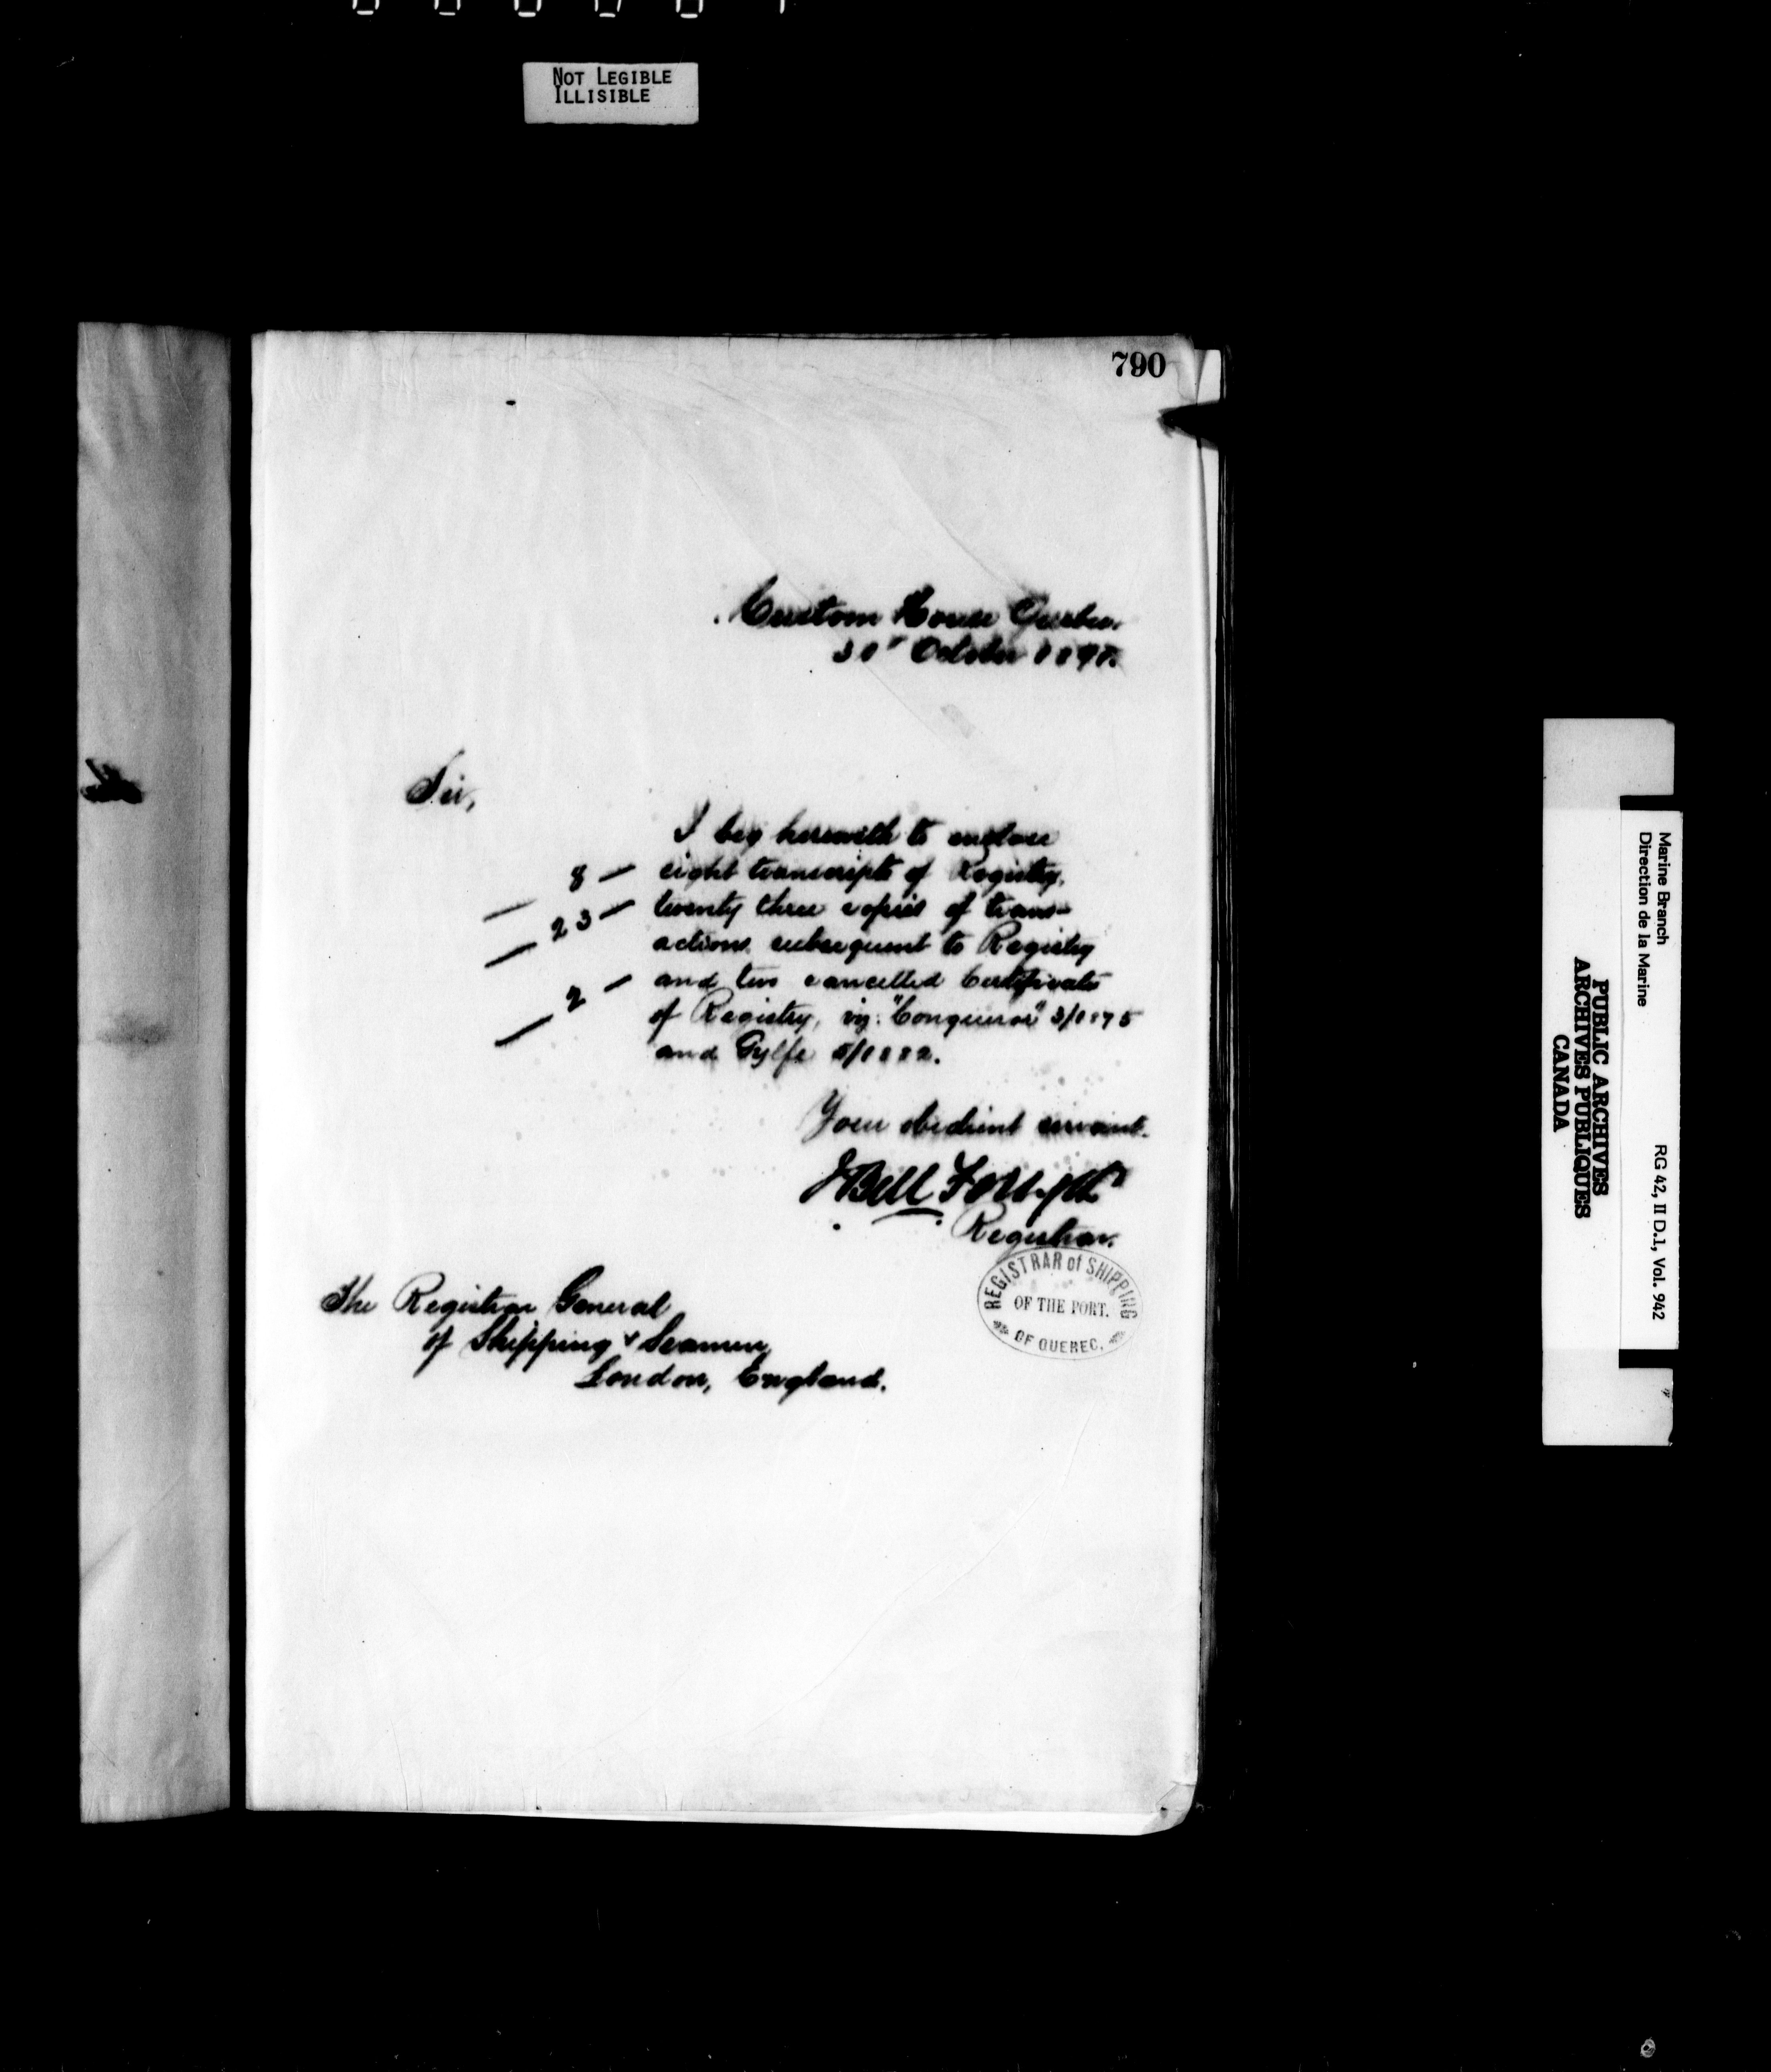 NOT LEGIBLE
ILLISIBLE
790
Custom House Quebec.
October
Sir,
I beg herewith to enclose
8 — eight transcripts of Registry,
23 — twenty three copies of trans-
actions subsequent to Registry
2 — and two cancelled Certificates
of Registry, viz: "Conqueror" 3/1875
and Gylfe 5/1882.
Your obedient servant.
J Bell Forsyth
Registrar.
REGISTRAR of SHIPPING
OF THE PORT.
OF QUEBEC.
The Registrar General
of Shipping & Seamen,
London, England.
Marine Branch
Direction de la Marine
RG 42, II D.1, Vol. 942
PUBLIC ARCHIVES
ARCHIVES PUBLIQUES
CANADA